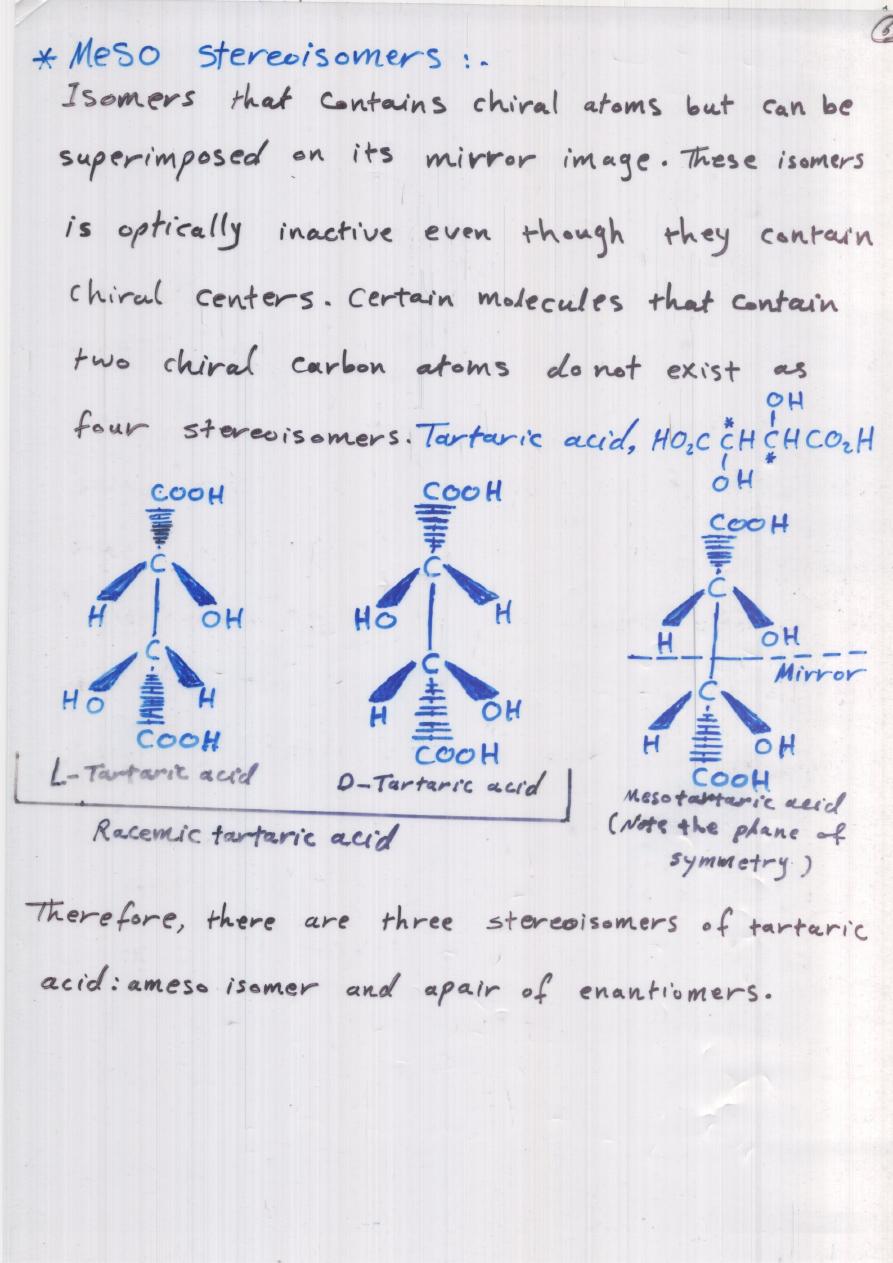 6
* Meso stereoisomers :.
Isomers that contains chiral atoms but can be
superimposed on its mirror image. These isomers
is optically inactive even though they contain
chiral centers. Certain molecules that contain
two chiral carbon atoms do not exist as
OH
four stereoisomers. Tartaric acid, HO₂C C*H C*HCO₂H
OH
COOH COOH COOH
C C C
H OH HO H H OH
Mirror
C C C
HO H H OH H OH
COOH COOH COOH
L-Tartaric acid D-Tartaric acid Mesotartaric acid
Racemic tartaric acid (Note the plane of
symmetry)
Therefore, there are three stereoisomers of tartaric
acid: ameso isomer and apair of enantiomers.